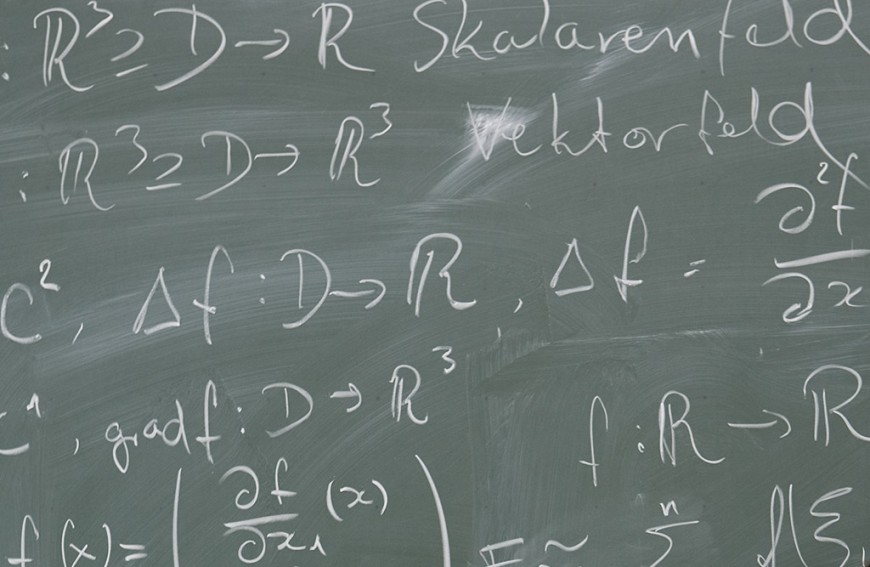 : ℝ³ ⊇ D → ℝ Skalarenfeld
: ℝ³ ⊇ D → ℝ³ Vektorfeld
C², Δf : D → ℝ, Δf = ∂²f/∂x
C¹, grad f : D → ℝ³ f : ℝ → ℝ
f(x) = ( ∂f/∂x₁ (x) ) F ≈ Σⁿ f(ξ